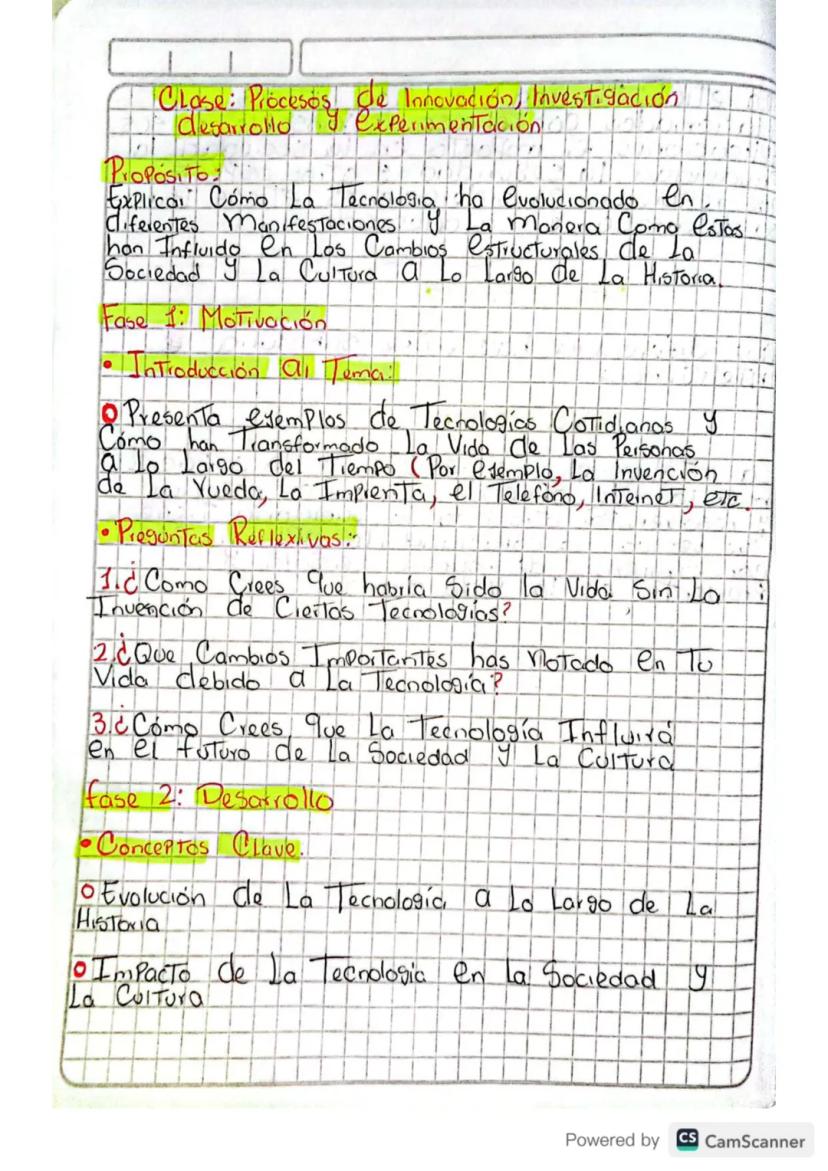 Clase: Procesos de Innovación, Investigación
desarrollo y experimentación
Propósito:
Explicar Cómo La Tecnología ha evolucionado en
diferentes manifestaciones y La manera Como estas
han Influido en Los Cambios estructurales de La
Sociedad y La Cultura a Lo Largo de La Historia.
Fase 1: Motivación
• Introducción al Tema:
o Presenta ejemplos de Tecnologías Cotidianas y
Cómo han Transformado La Vida de Las Personas
a Lo Largo del Tiempo (Por ejemplo, La Invención
de La rueda, La Imprenta, el Teléfono, Internet, etc.
• Preguntas Reflexivas:
1.¿Como Crees que habría Sido la Vida Sin La
Invención de Ciertas Tecnologías?
2.¿Que Cambios Importantes has notado en Tu
Vida debido a La Tecnología?
3.¿Cómo Crees que La Tecnología Influirá
en el futuro de La Sociedad y La Cultura
fase 2: Desarrollo
• Conceptos Clave.
o Evolución de La Tecnología a Lo Largo de La
Historia
o Impacto de La Tecnología en la Sociedad y
La Cultura
Powered by CS CamScanner